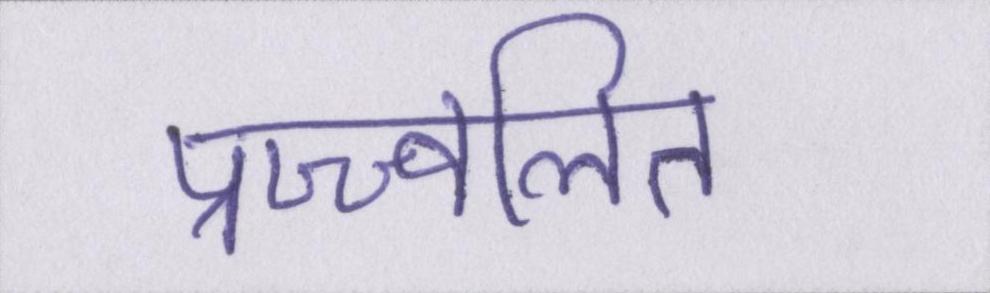 प्रज्ज्वलित